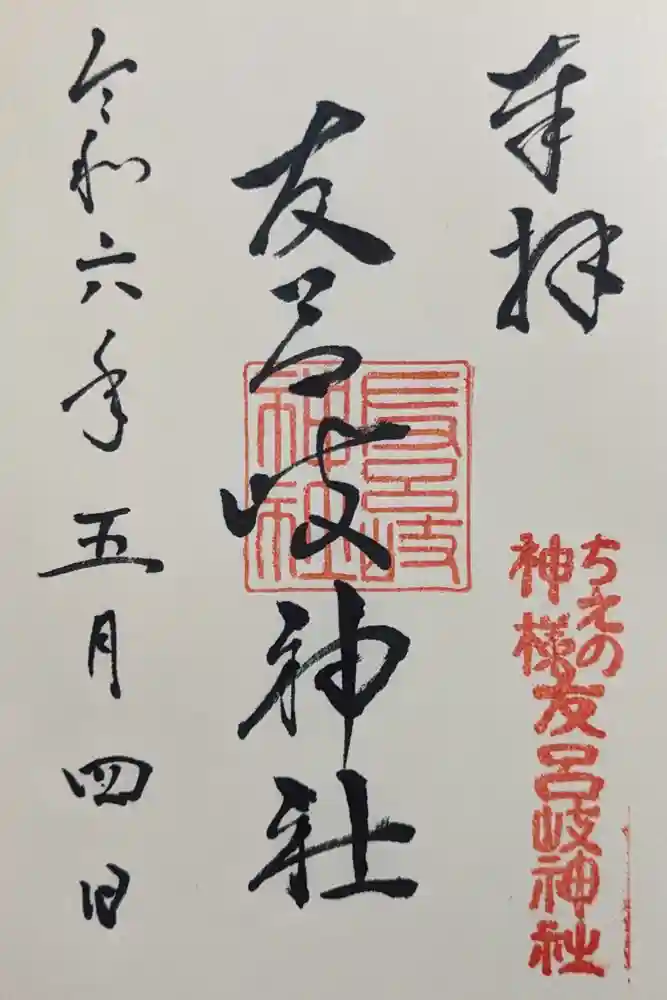 奉拝
ちえの
神様
友呂岐神社
友呂岐神社
友呂岐
神社
令和六年五月四日